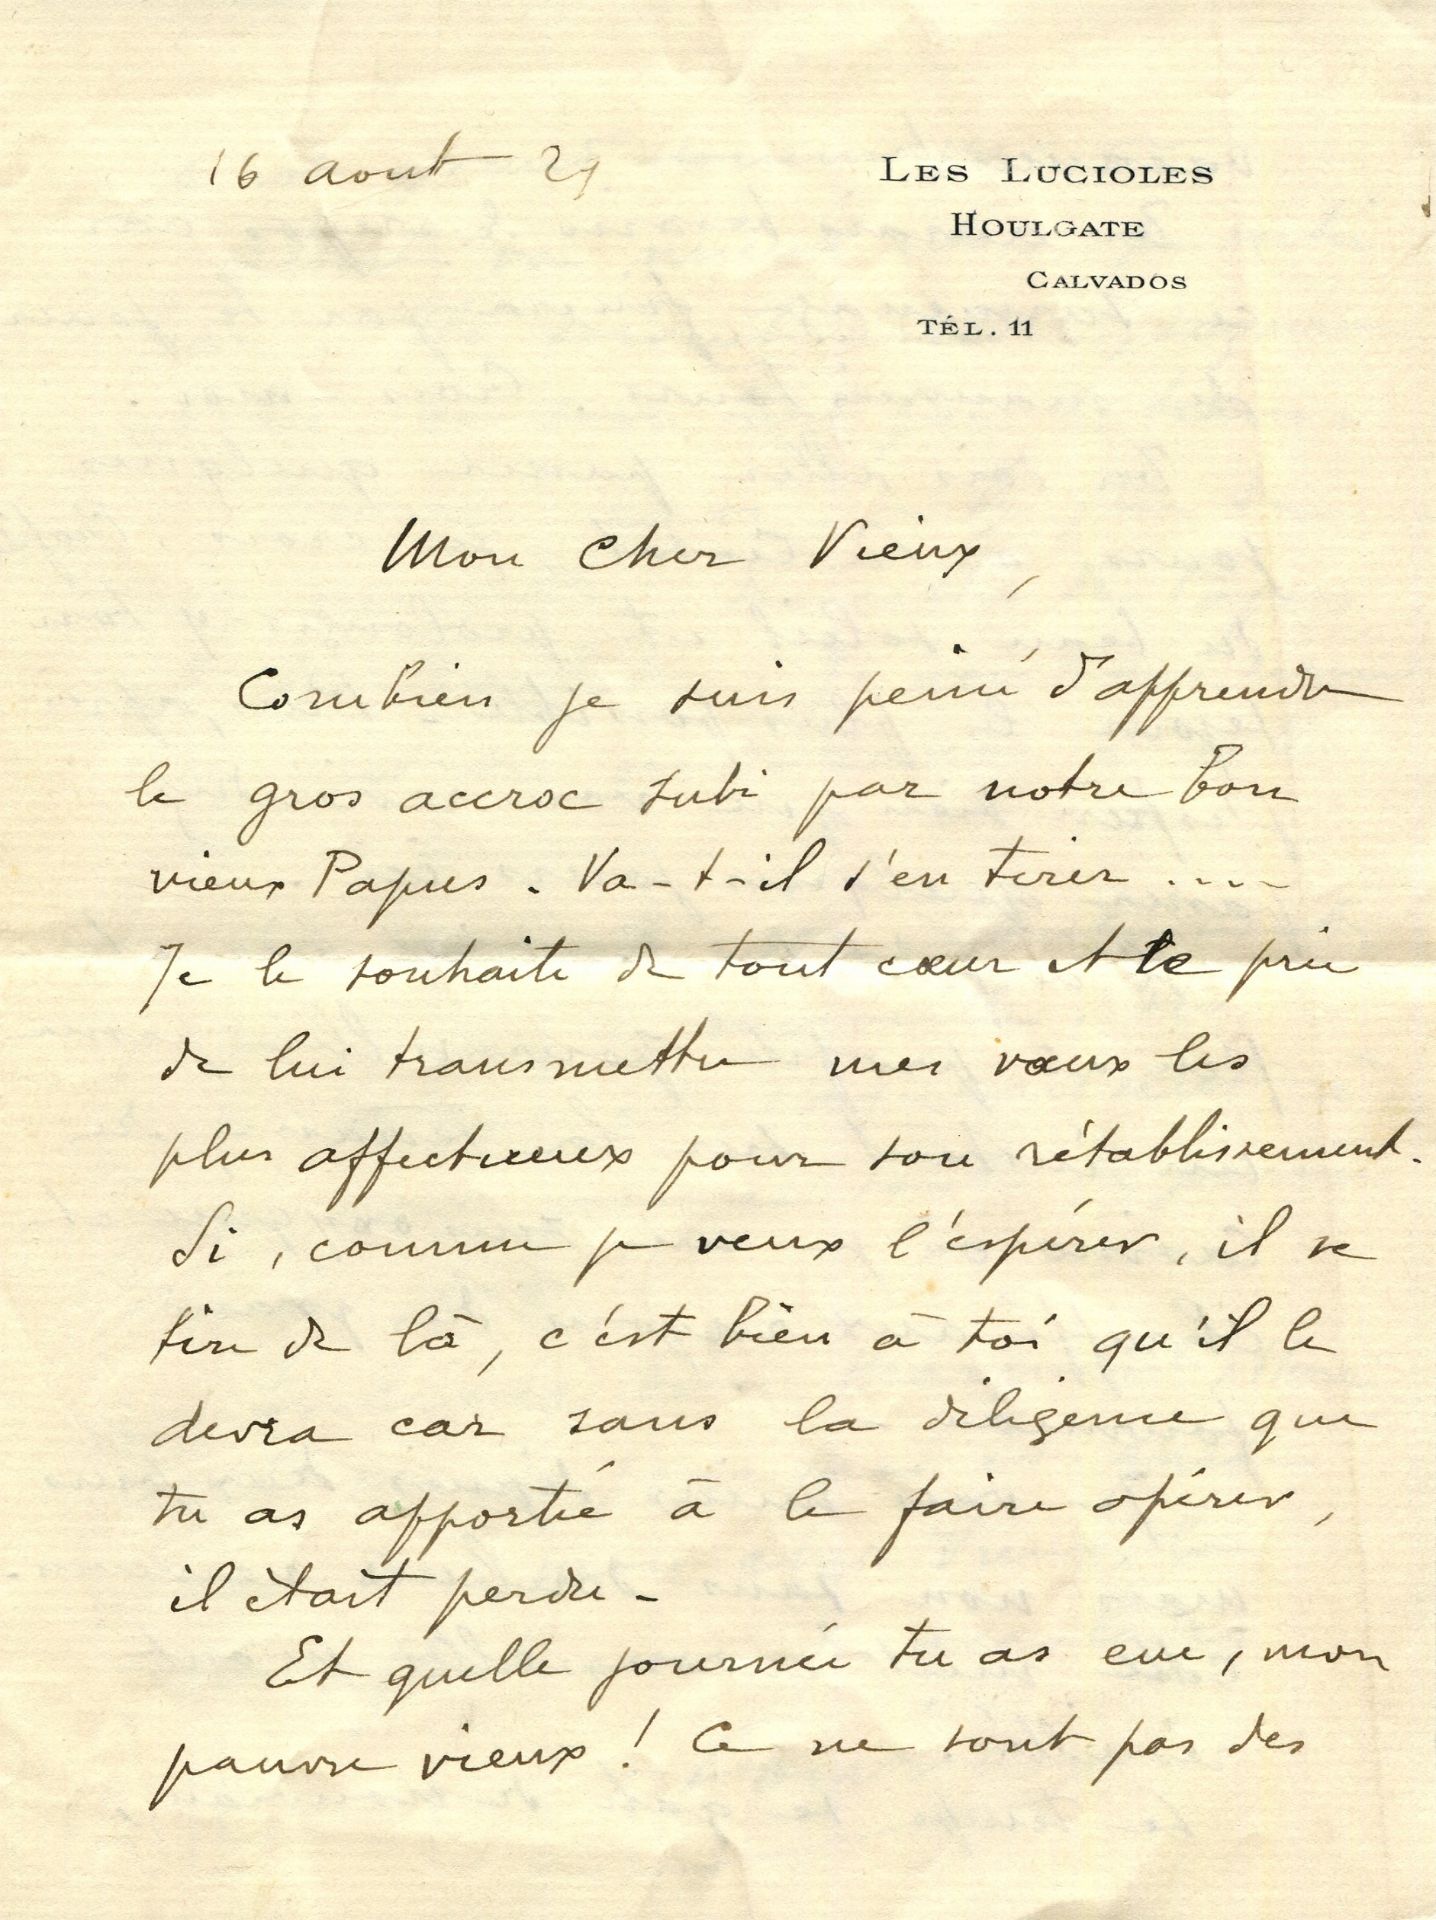 16 aout 29
LES LUCIOLES
HOULGATE
CALVADOS
TÉL. 11
Mon Cher Vieux,
Combien je suis peiné d'apprendre
le gros accroc subi par notre bon
vieux Papus. Va-t-il s'en tirer ....
Je le souhaite de tout cœur et te prie
de lui transmettre mes vœux les
plus affectueux pour son rétablissement.
Si, comme je veux l'espérer, il se
tire de là, c'est bien à toi qu'il le
devra car sans la diligence que
tu as apportée à le faire opérer,
il était perdu -
Et quelle journée tu as eue, mon
pauvre vieux ! Ce ne sont pas des